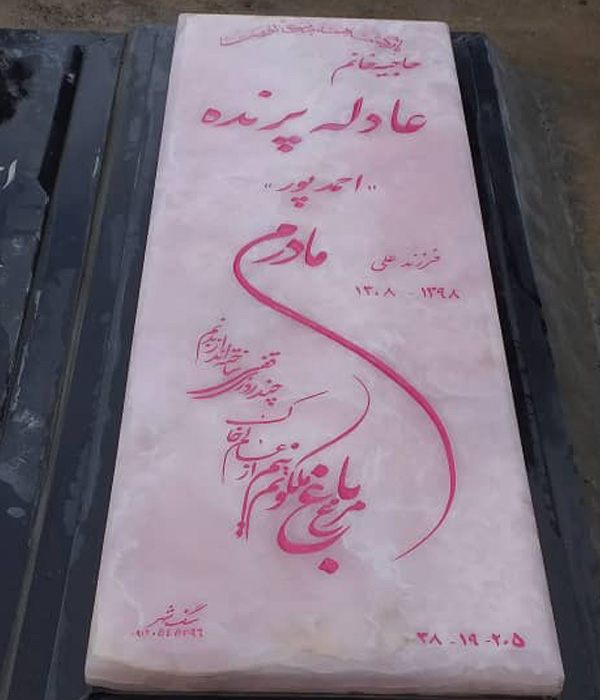 حاجیه خانم
عادله پرنده
"احمدپور"
مادرم
فرزند علی
۱۳۰۸ - ۱۳۹۸
مرغ باغ ملکوتم نیم از عالم خاک
چند روزی قفسی ساخته‌اند از بدنم
سنگ شهر
۳۸ - ۱۹ - ۲۰۵